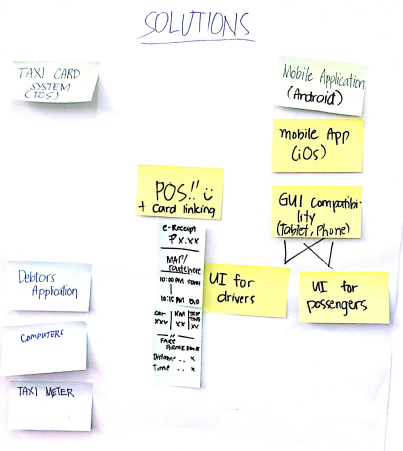 SOLUTIONS
TAXI CARD
SYSTEM
(TCS)
Mobile Application
(Android)
mobile App
(iOs)
POS!!
+ card linking
GUI Compatibi-
lity
(Tablet, Phone)
e-Receipt
₱x.xx
MAP/
route here
10:00 PM
10:15 PM
UI for
drivers
UI for
passengers
Debtors
Application
COMPUTERS
TAXI METER
car
xxx
KM
xx
FARE
Distance .. x
Time .. x